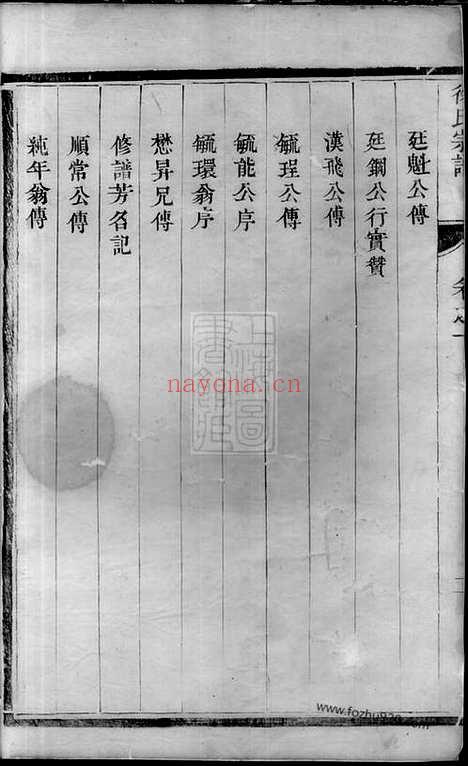 氏宗譜
廷魁公傳
廷鋼公行實贊
漢飛公傳
毓珵公傳
毓能公序
毓環翁序
懋昇兄傳
修譜芳名記
順常公傳
純年翁傳
nayona.cn